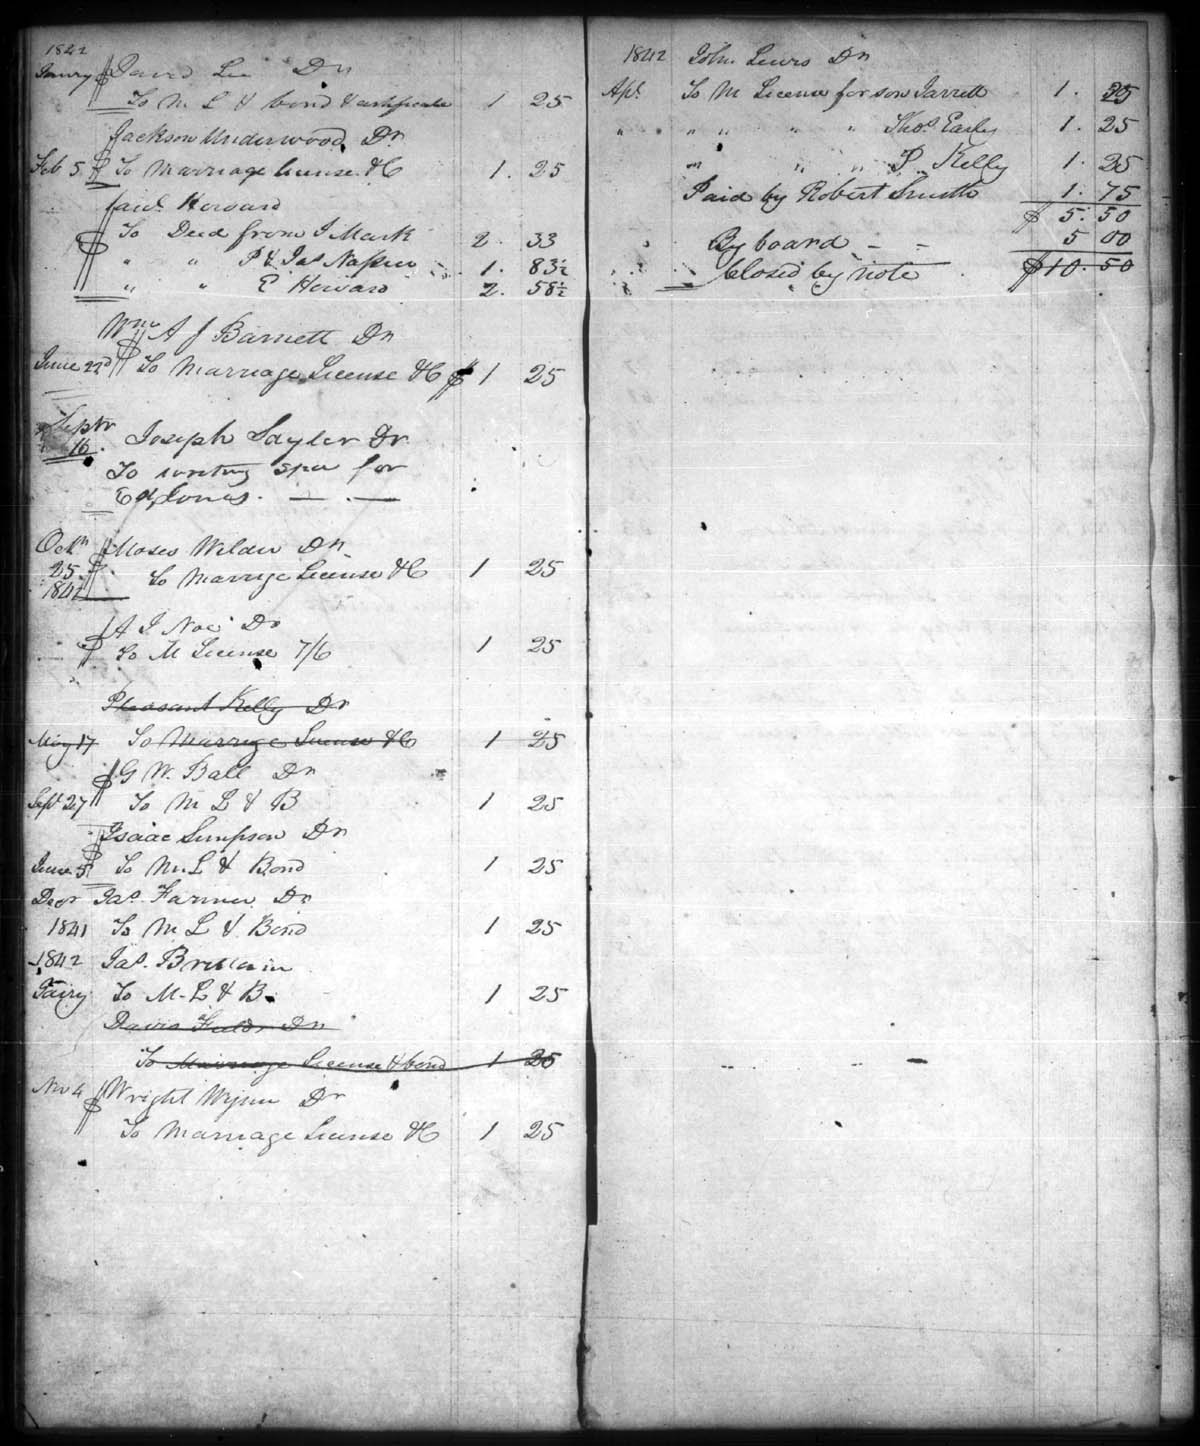 1842
Janry David Lee Dr
To M L & bond & certificate 1. 25
Jackson Underwood Dr
Feb 5 To Marriage License &C 1. 25
Howard
To Deed from J Mark 2. 33
" " P & Jas Napier 1. 83½
" " E Howard 2. 58½
Wm A J Barnett Dr
June 22d To Marriage License &C $ 1 25
Septr
16. Joseph Sayler Dr
To writing for
Ed Jones. — —
Octr Moses Wilder Dr
25. To Marrige License &C 1 25
1842
A J Noe Dr
To M License 7/6 1 25
Pleasant Kelly Dr
May 17 To Marrige License &C 1 25
G W. Ball Dr
Sept 27 To M L & B 1 25
Isaac Simpson Dr
June 5 To M. L & Bond 1 25
Decr Jas Farmer Dr
1841 To M L & Bond 1 25
1842 Jas. Brittain
To M. L & B. 1 25
Davis Fields Dr
To Marriage License & bond 1 25
Nov 4 Wright Wynn Dr
To Marriage License &C 1 25
1842 John Lewis Dr
Apl. To M License for son Jarrett 1. 25
" " " " " Thos Earley 1. 25
" " " P. Kelly 1. 25
Paid by Robert Smith 1. 75
$ 5. 50
By board – – 5 00
Closed by note $10. 50